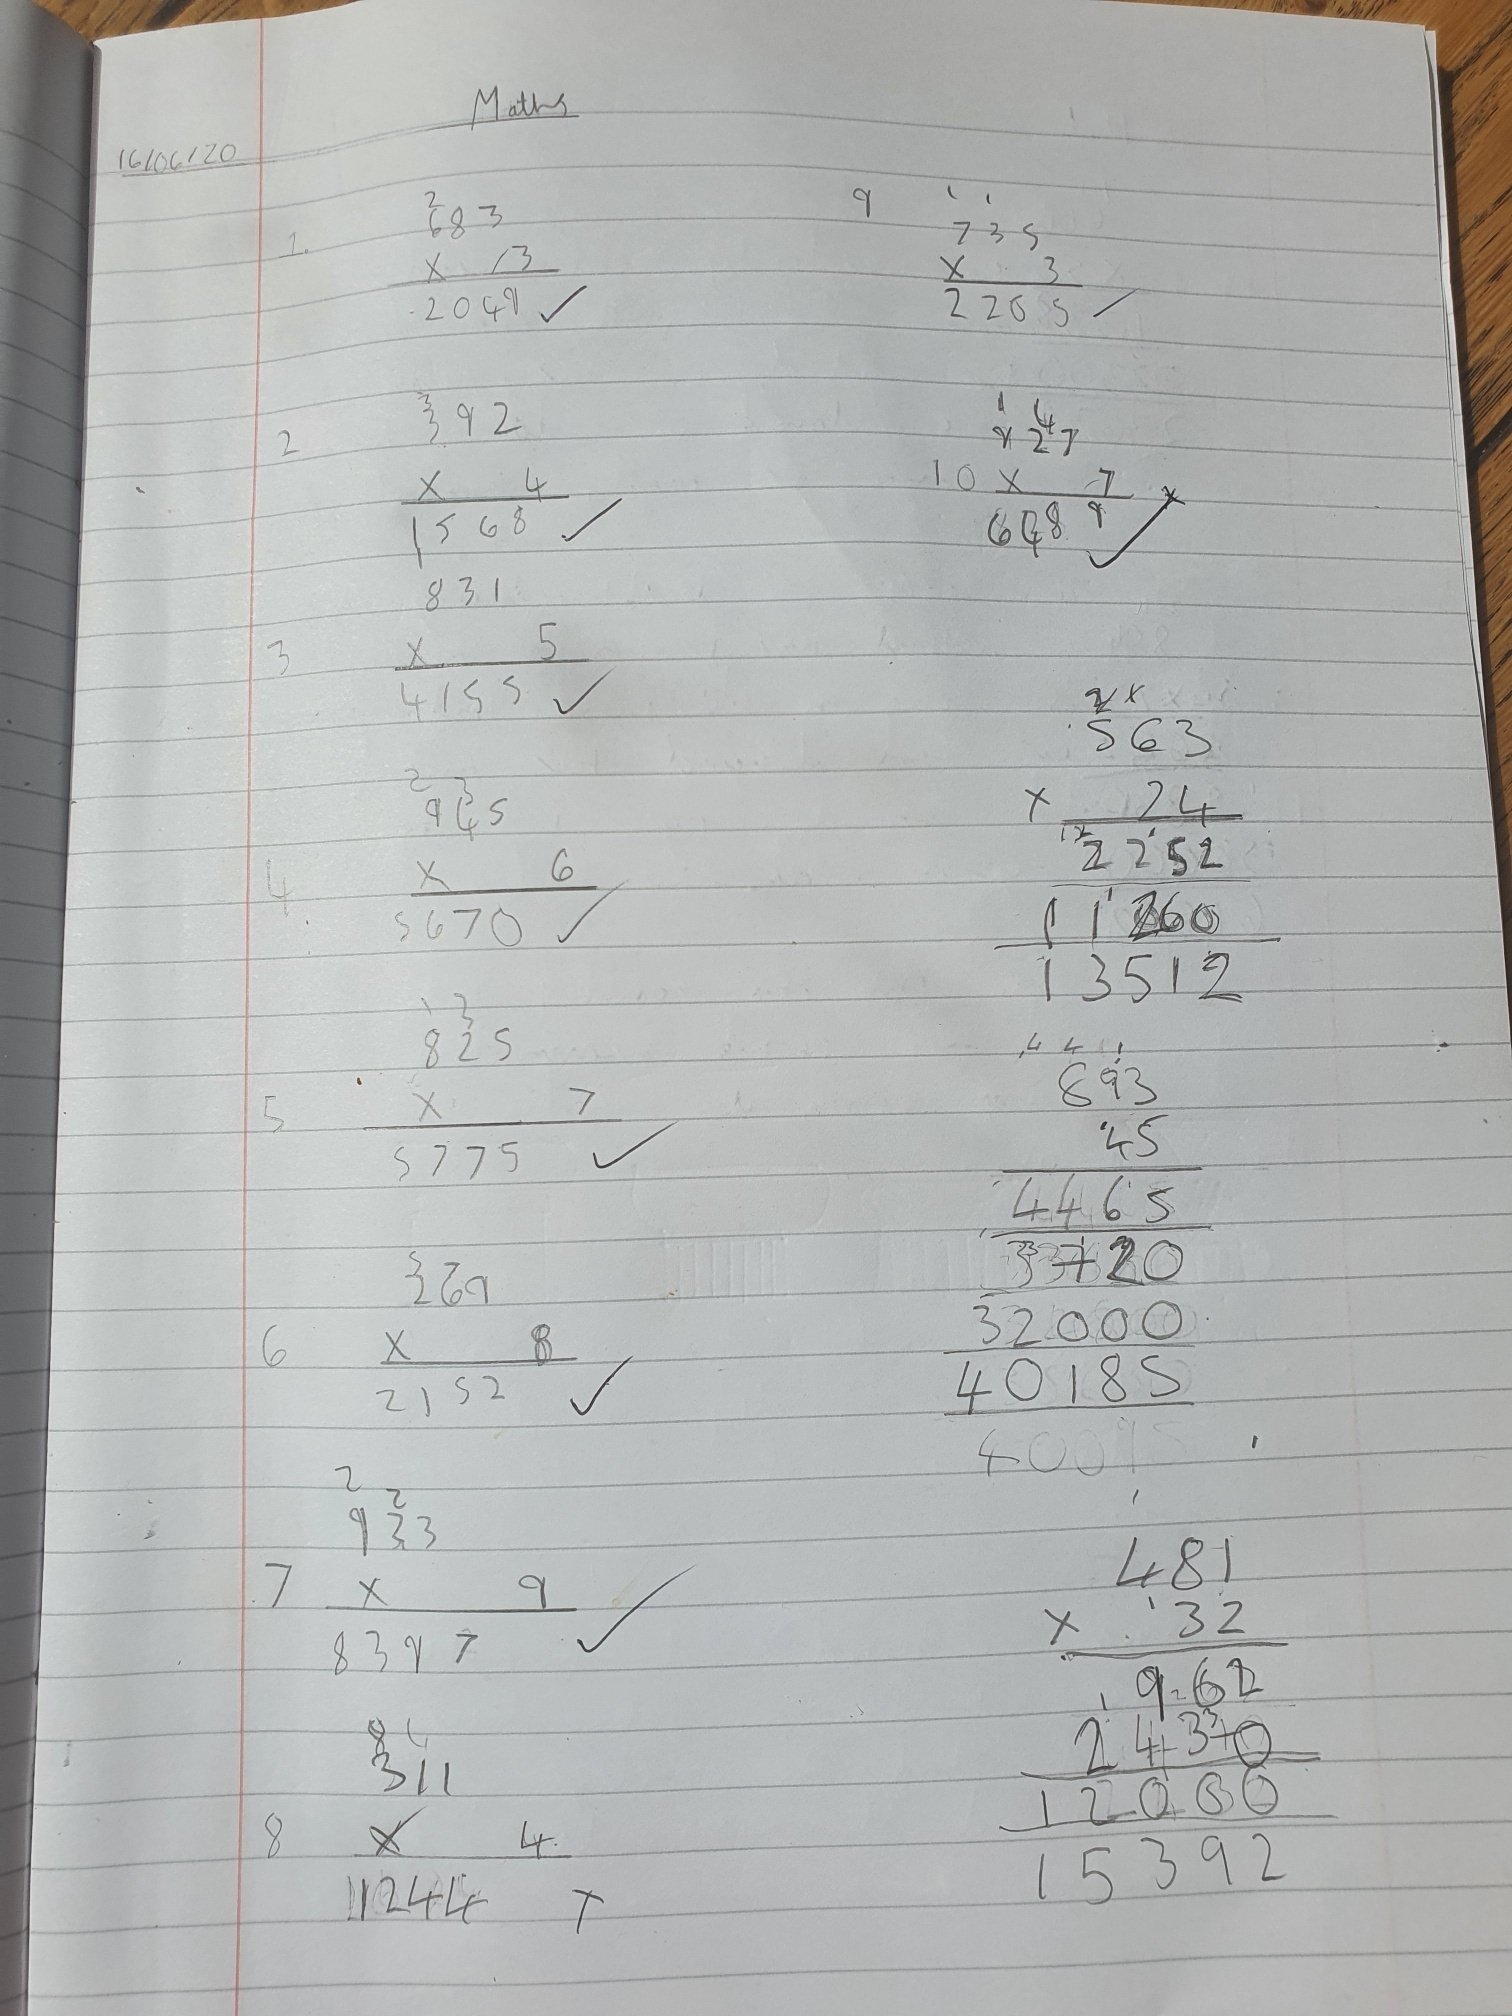 Maths
16/06/20
2
1. 683
x 3
2049 ✓
3
2 392
x 4
1568 ✓
831
3 x 5
4155 ✓
2 3
945
4 x 6
5670 ✓
1 3
825
5 x 7
5775 ✓
5 7
269
6 x 8
2152 ✓
2 2
933
7 x 9
8397 ✓
311
8 x 4
1244 x
9 1 1
735
x 3
2205 ✓
1 4
927
10 x 7
6489 ✓
2 x
563
x 24
2252
11260
13512
4 4 1
893
45
4465
3720
32000
40185
40095
481
x 32
962
2430
12000
15392